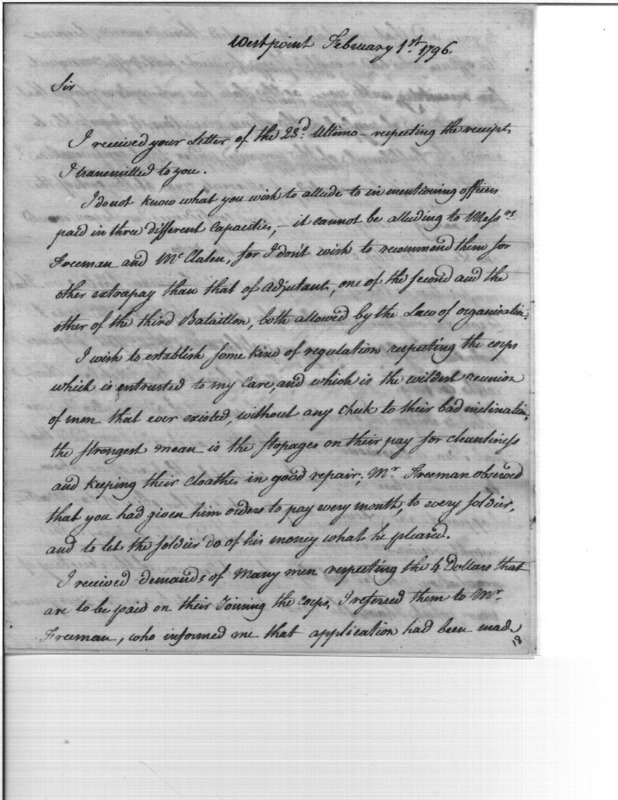 Westpoint February 1st. 1796.
Sir
I received your Letter of the 23d. Ultimo - respecting the receipts
I transmitted to you.
I do not know what you wish to allude to in mentioning officers
paid in three different Capacities, - it cannot be alluding to Mess.rs
Freeman and McClalen, for I don't wish to recommend them for
other extrapay than that of Adjutant, one of the second and the
other of the third Bataillon, both allowed by the Law of organization;
I wish to establish some kind of regulation respecting the corps
which is entrusted to my Care, and which is the wildest reunion
of men that ever existed, without any cheek to their bad inclination,
the strongest mean is the stopages on their pay for cleanliness
and keeping their cloathes in good repair; Mr. Freeman observed
that you had given him orders to pay every month, to every soldier,
and to let the soldier do of his money what he pleased.
I received demands of many men respecting the 4 Dollars that
are to be paid on their Joining the Corps, I referred them to Mr.
Freeman, who informed me that application had been made